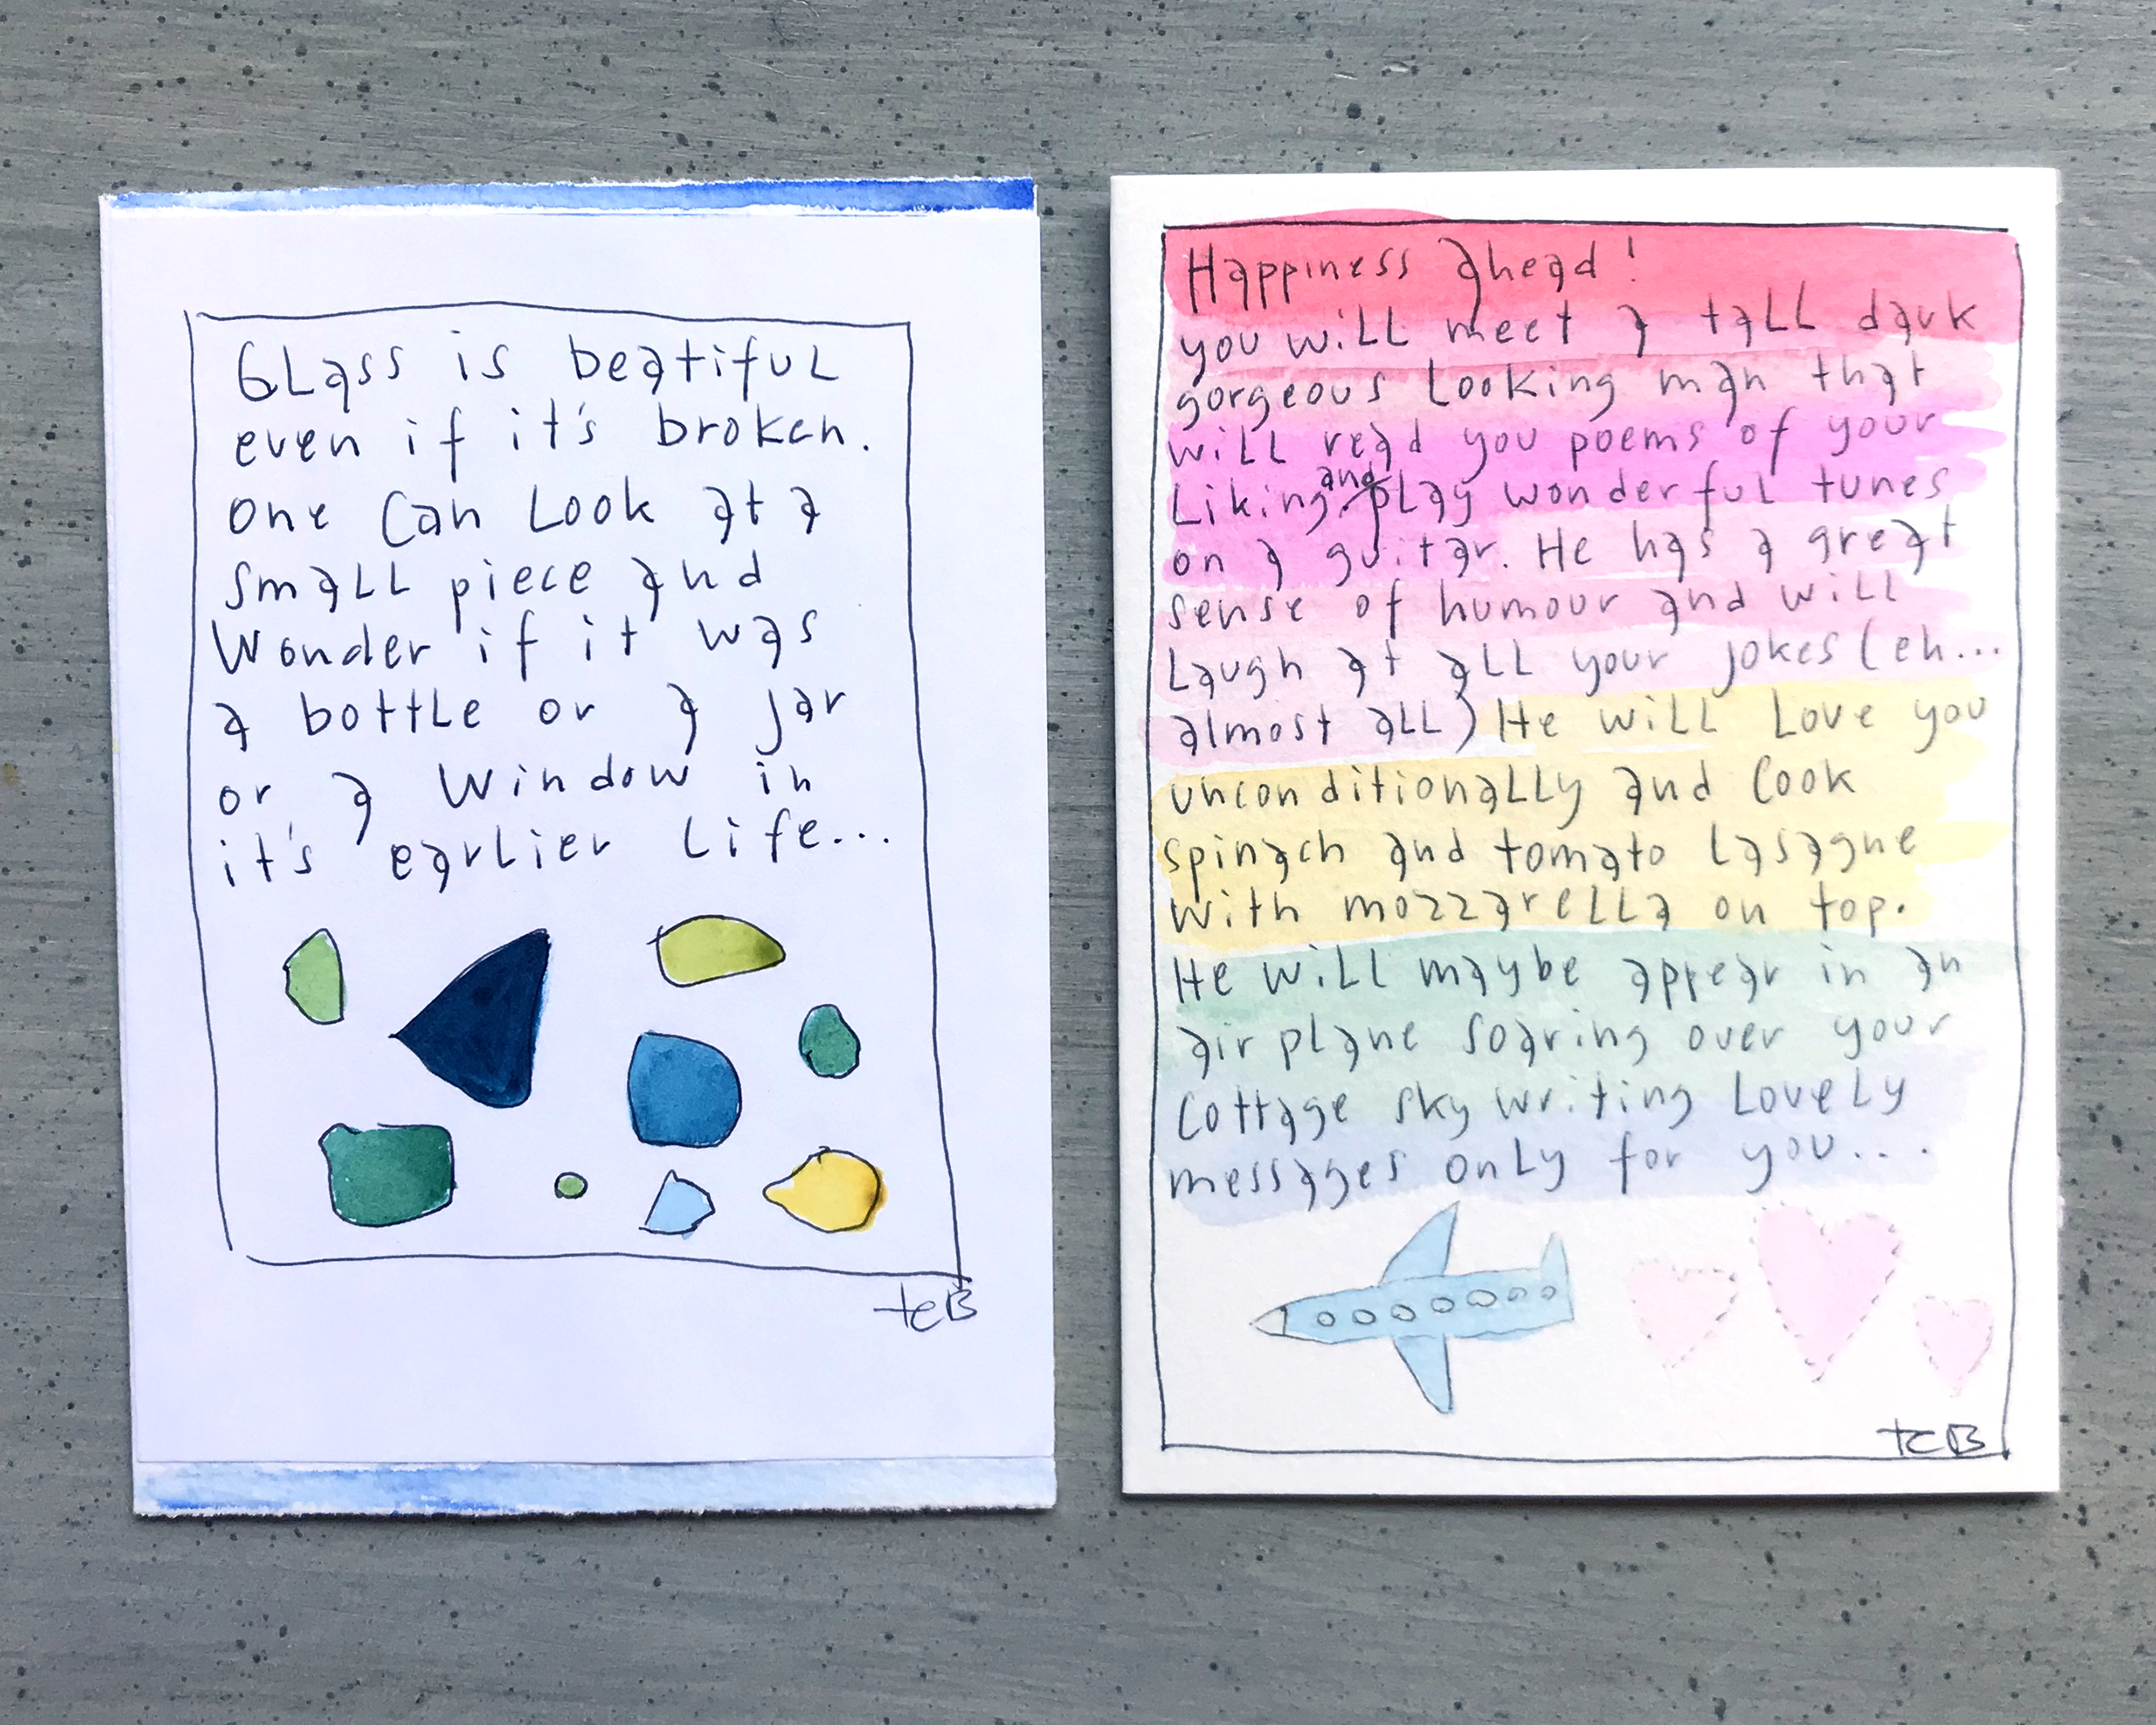 Glass is beatiful
even if it's broken.
One can look at a
small piece and
wonder if it was
a bottle or a jar
or a window in
it's earlier life...
tcB
Happiness ahead!
you will meet a tall dark
gorgeous looking man that
will read you poems of your
liking and play wonderful tunes
on a guitar. He has a great
sense of humour and will
laugh at all your jokes (eh...
almost all) He will love you
unconditionally and cook
spinach and tomato lasagne
with mozzarella on top.
He will maybe appear in an
airplane soaring over your
cottage sky writing lovely
messages only for you...
tcB